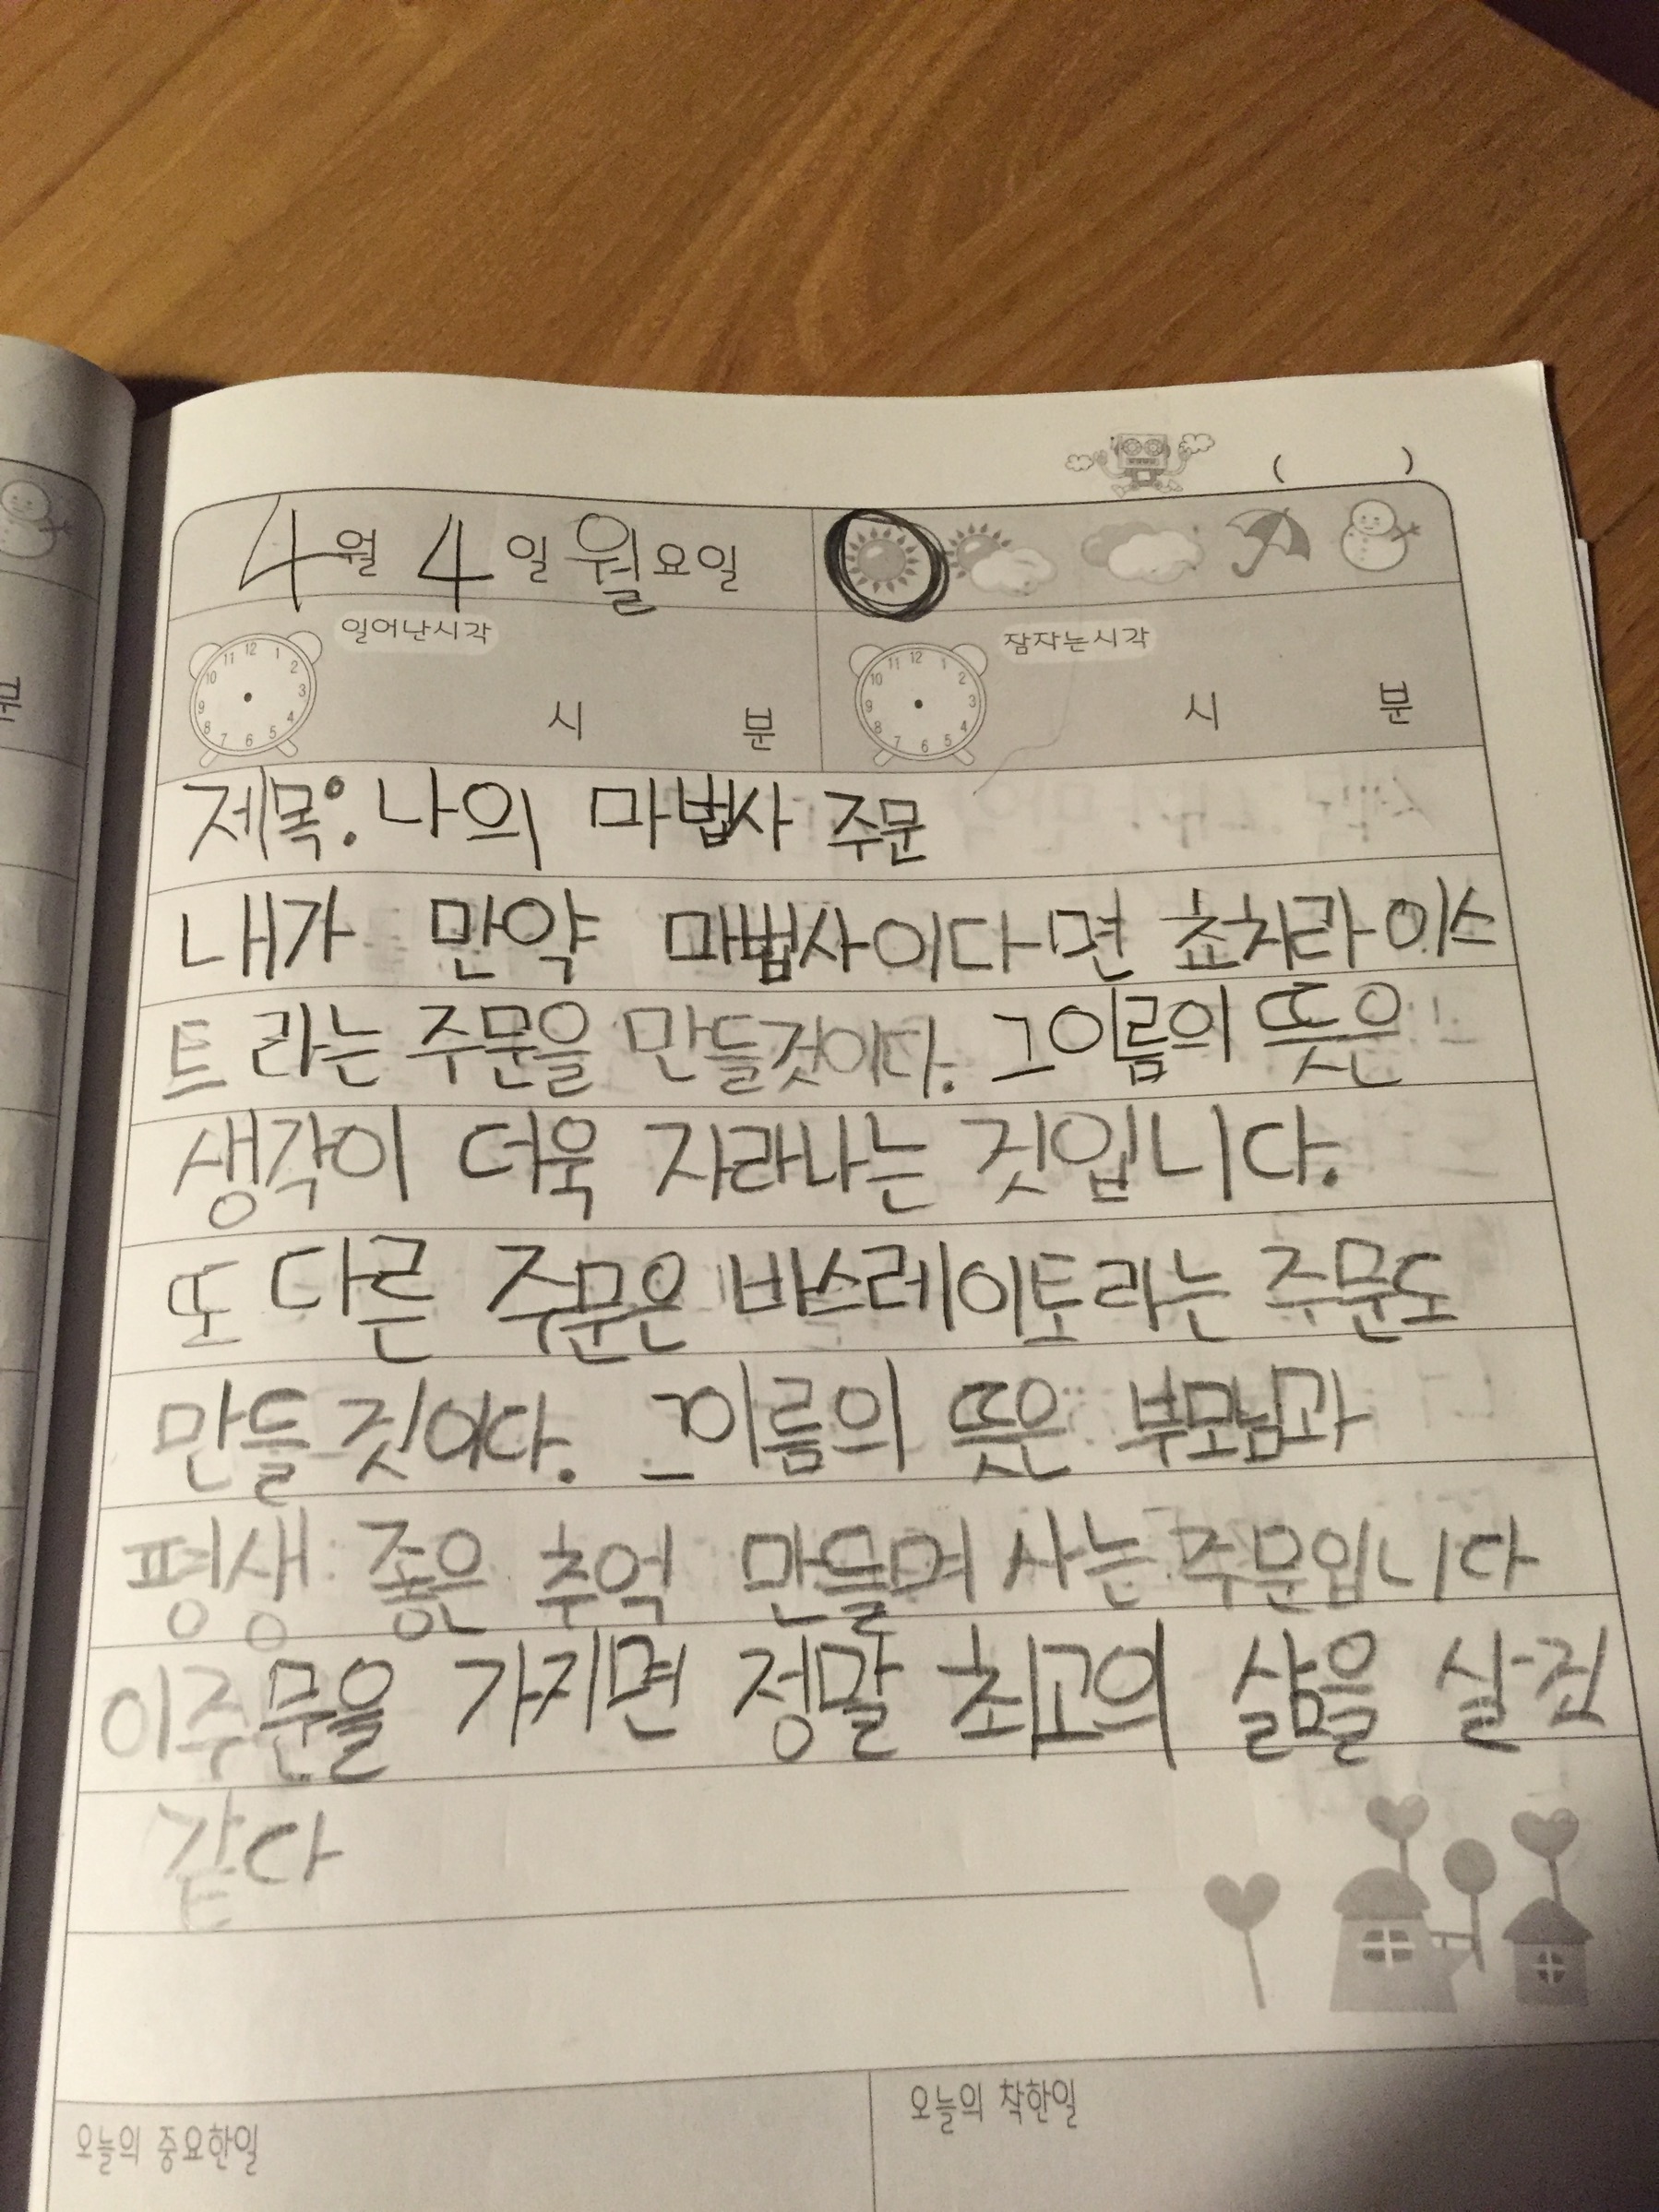 ( )
4월 4일 월요일
일어난시각
시 분
잠자는시각
시 분
12 1 2 3 4 5 6 7 8 9 10 11
12 1 2 3 4 5 6 7 8 9 10 11
제목: 나의 마법사 주문
내가 만약 마법사이다면 쵸차라이스
트라는 주문을 만들것이다. 그이름의 뜻은
생각이 더욱 자라나는 것입니다.
또 다른 주문은 바스레이토라는 주문도
만들 것이다. 그이름의 뜻은 부모님과
평생 좋은 추억 만들며 사는 주문입니다
이주문을 가지면 정말 최고의 삶을 살것
같다
오늘의 중요한일
오늘의 착한일